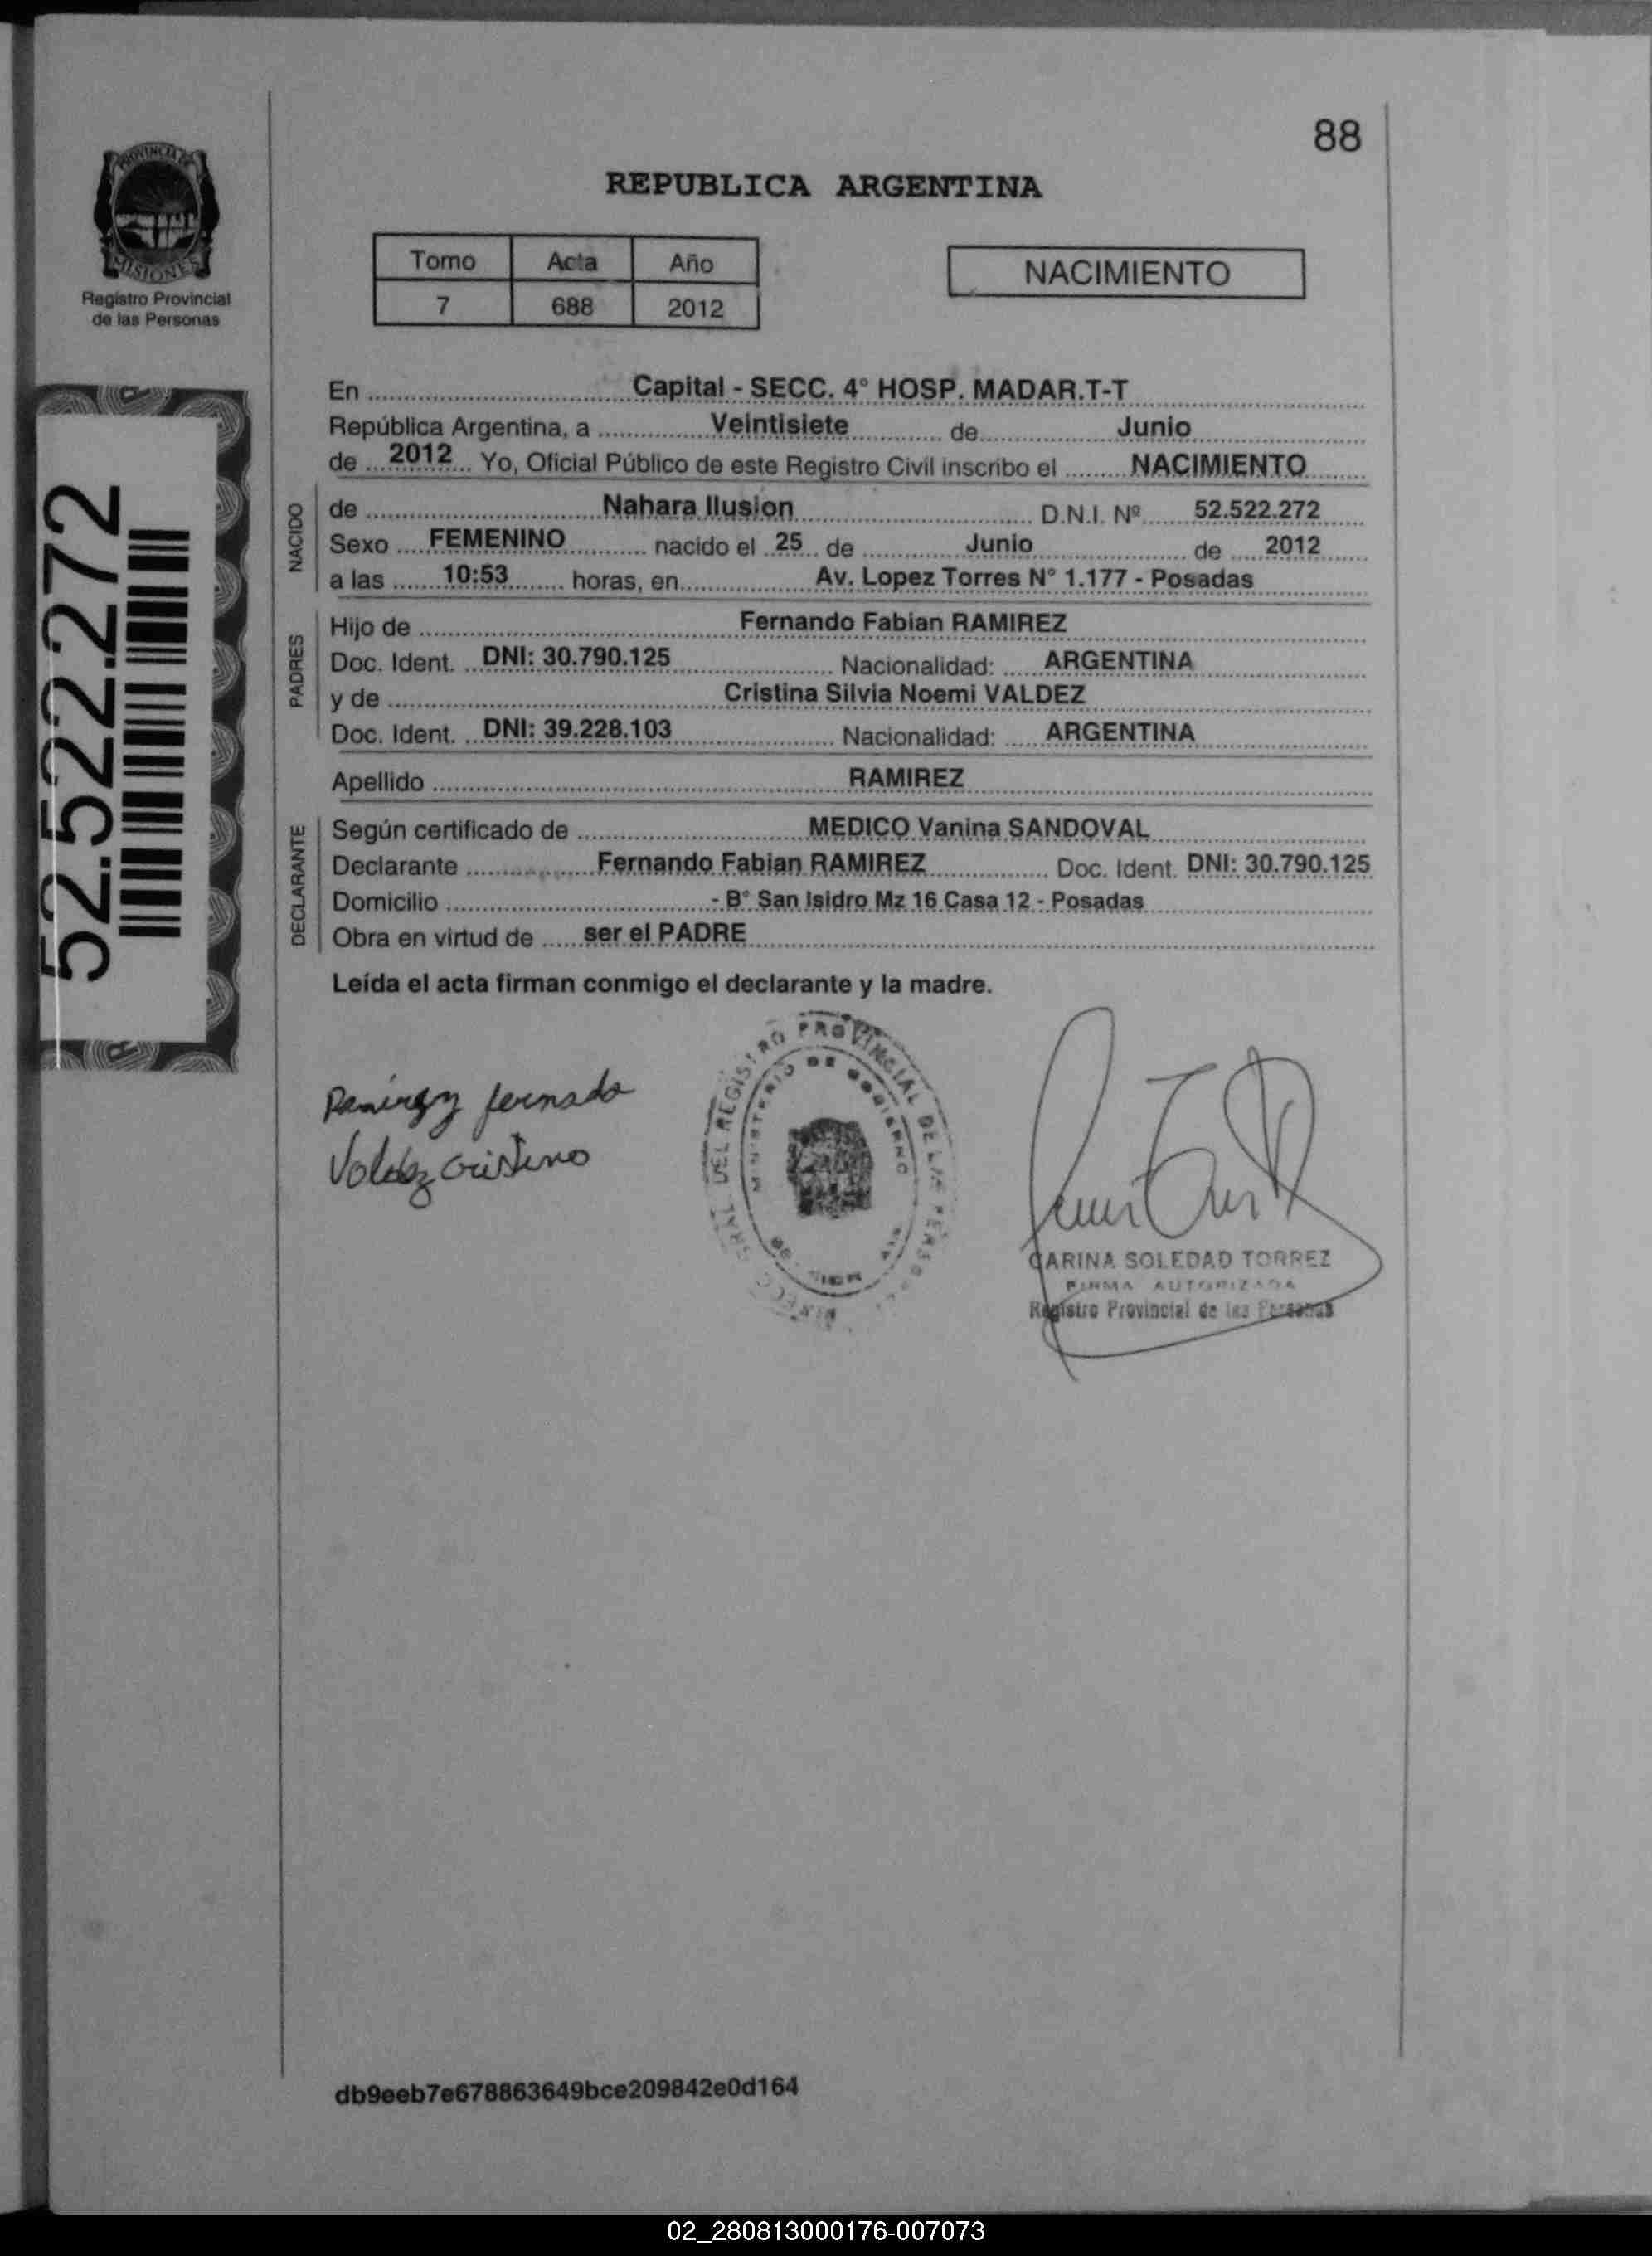 88
REPUBLICA ARGENTINA
PROVINCIA DE
MISIONES
Registro Provincial
de las Personas
Tomo Acta Año
7 688 2012
NACIMIENTO
52.522.272
En Capital - SECC. 4° HOSP. MADAR.T-T
República Argentina, a Veintisiete de Junio
de 2012 Yo, Oficial Público de este Registro Civil inscribo el NACIMIENTO
NACIDO
de Nahara Ilusion D.N.I. Nº 52.522.272
Sexo FEMENINO nacido el 25 de Junio de 2012
a las 10:53 horas, en Av. Lopez Torres N° 1.177 - Posadas
PADRES
Hijo de Fernando Fabian RAMIREZ
Doc. Ident. DNI: 30.790.125 Nacionalidad: ARGENTINA
y de Cristina Silvia Noemi VALDEZ
Doc. Ident. DNI: 39.228.103 Nacionalidad: ARGENTINA
Apellido RAMIREZ
DECLARANTE
Según certificado de MEDICO Vanina SANDOVAL
Declarante Fernando Fabian RAMIREZ Doc. Ident. DNI: 30.790.125
Domicilio - B° San Isidro Mz 16 Casa 12 - Posadas
Obra en virtud de ser el PADRE
Leída el acta firman conmigo el declarante y la madre.
Ramirez fernado
Valdez Cristina
DEL REGISTRO PROVINCIAL DE LAS
MINISTERIO DE GOBIERNO
CARINA SOLEDAD TORREZ
FIRMA AUTORIZADA
Registro Provincial de las Personas
db9eeb7e678863649bce209842e0d164
02_280813000176-007073